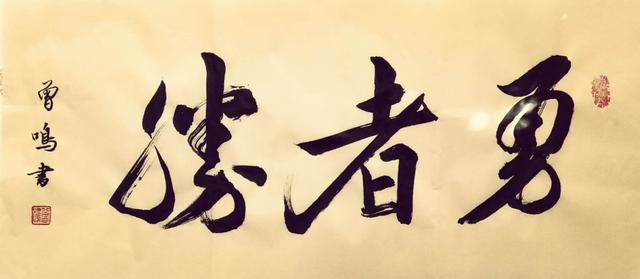 勇者勝
曾鳴書